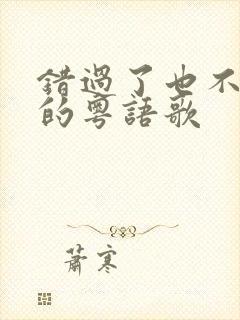 錯過了也不
的粵語歌
蕭寒